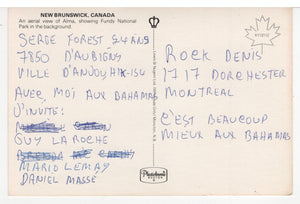 NEW BRUNSWICK, CANADA
An aerial view of Alma, showing Fundy National
Park in the background.
SERGE FOREST 24 ANS
7850 D'AUBIGNY
VILLE D'ANJOU H1K-1S4
AVEC MOI AUX BAHAMAS
J'INVITE:
GUY LA ROCHE
MARIO LEMAY
DANIEL MASSE
ROCK DENIS
1717 DORCHESTER
MONTREAL
C'EST BEAUCOUP
MIEUX AUX BAHAMAS